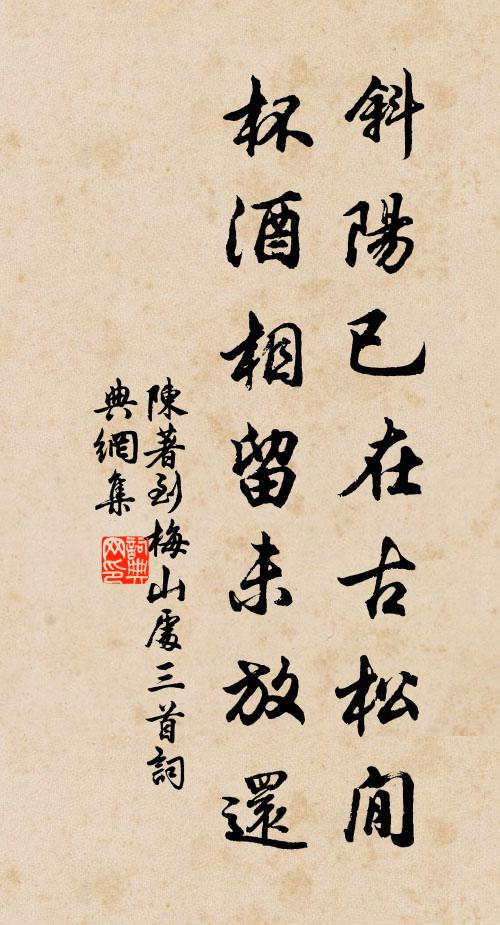 斜陽已在古松間
杯酒相留未放還
陳著到梅山處三首詞
典網集
詞典網印